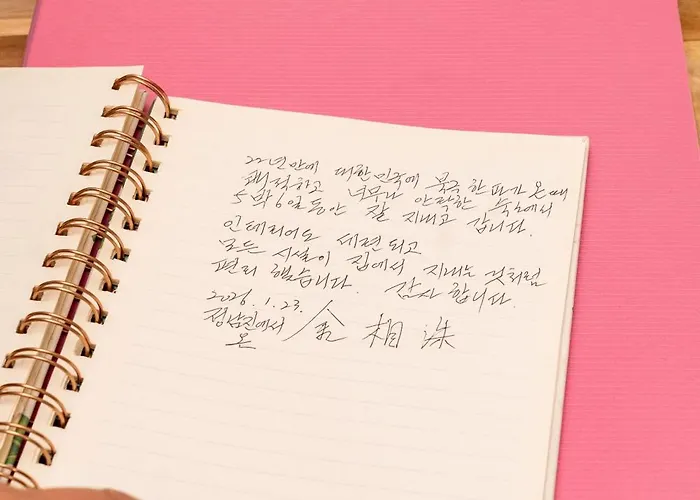 22년만에 대한민국에 북극 한파가 온 때
쾌적하고 너무나 안락한 숙소에서
5박6일 동안 잘 지내고 갑니다.
인테리어도 세련되고
모든 시설이 집에서 지내는 것처럼
편리 했습니다. 감사 합니다.
2026. 1. 23.
정남진에서
온 金 相 洙